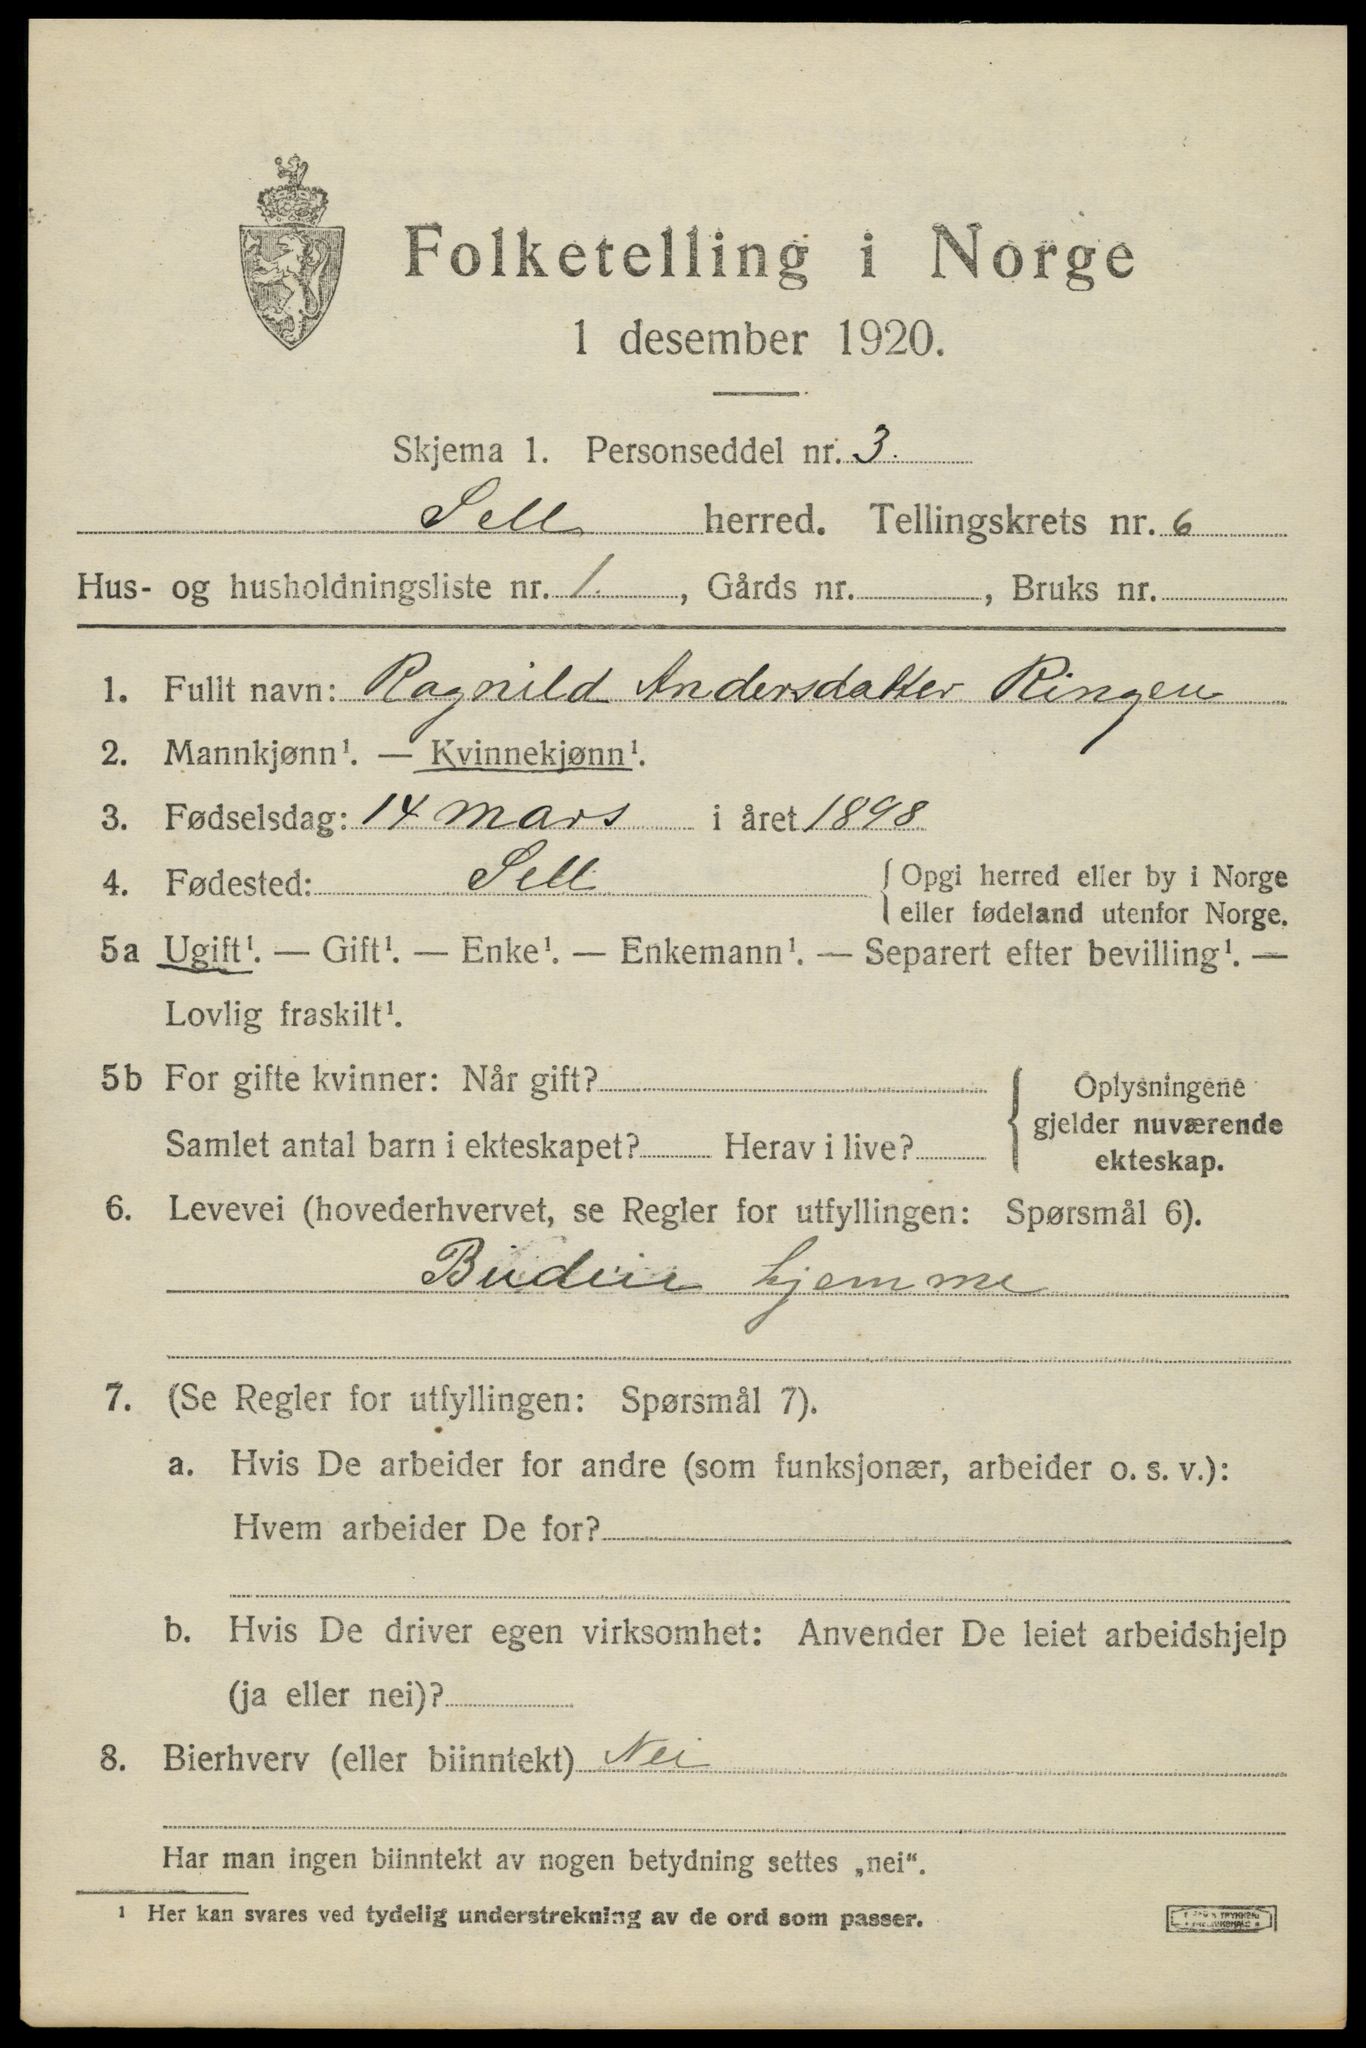 Folketelling i Norge
1 desember 1920.
Skjema 1. Personseddel nr. 3.
Sell herred. Tellingskrets nr. 6
Hus- og husholdningsliste nr. 1., Gårds nr. , Bruks nr.
1. Fullt navn: Ragnild Andersdatter Ringen
2. Mannkjønn¹. — Kvinnekjønn¹.
3. Fødselsdag: 14 mars i året 1898
4. Fødested: Sell { Opgi herred eller by i Norge
eller fødeland utenfor Norge.
5a Ugift¹. — Gift¹. — Enke¹. — Enkemann¹. — Separert efter bevilling¹. —
Lovlig fraskilt¹.
5b For gifte kvinner: Når gift?
Samlet antal barn i ekteskapet? Herav i live?
{ Oplysningene
gjelder nuværende
ekteskap.
6. Levevei (hovederhvervet, se Regler for utfyllingen: Spørsmål 6).
Budeie hjemme
7. (Se Regler for utfyllingen: Spørsmål 7).
a. Hvis De arbeider for andre (som funksjonær, arbeider o. s. v.):
Hvem arbeider De for?
b. Hvis De driver egen virksomhet: Anvender De leiet arbeidshjelp
(ja eller nei)?
8. Bierhverv (eller biinntekt) Nei
Har man ingen biinntekt av nogen betydning settes „nei“.
¹ Her kan svares ved tydelig understrekning av de ord som passer.